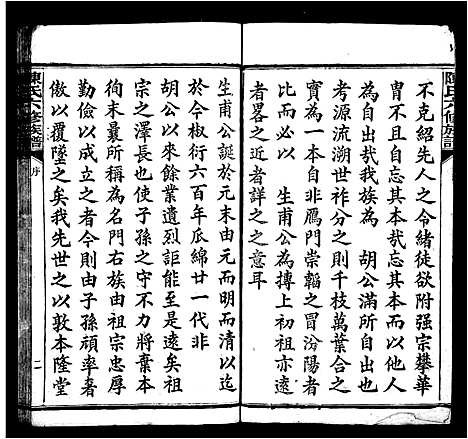 不克紹先人之令緒徒欲附强宗攀華
胄不且忘其本哉忘其本而以他人
為自出哉我族為　胡公滿所自出也
考源流溯世祚分之則千枝萬葉合之
實為一本非鴈門崇韜之冒汾陽者
比而必以　生甫公為摶上初祖亦遠
者畧之近者詳之之意耳
生甫公誕於元末由元而明而清以迄
於今椒衍六百年瓜綿廿一代非
胡公以來餘業遺烈詎能至是遠矣祖
宗之澤長也使子孫之守不力將棄本
徇末曩所稱為名門右族由祖宗忠厚
勤儉以成立之者今則由子孫頑率奢
傲以覆墜之矣我先世之以敦本隆堂
陳氏六修族譜
序
二